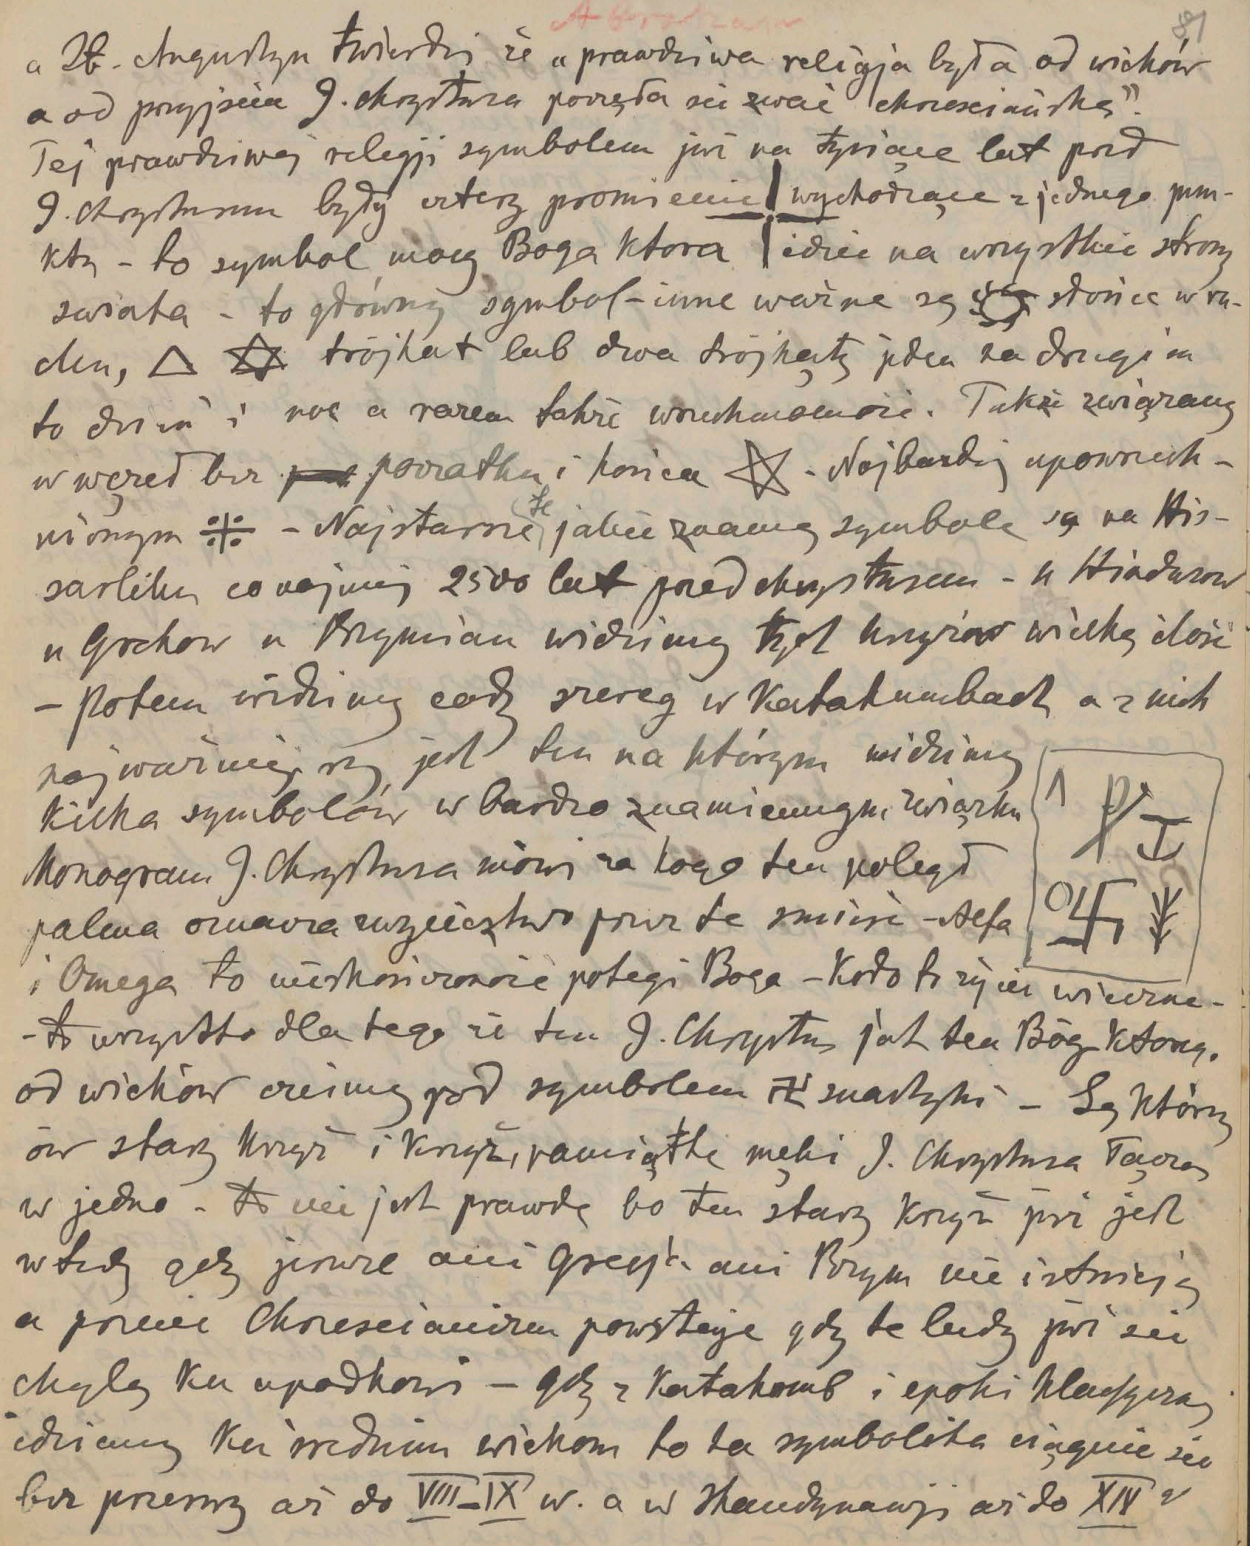 81
a St. Augustyn twierdzi że „prawdziwa religja była od wieków
a od przyjścia J. Chrystusa poczęła się zwać chrześciańską”.
Tej prawdziwej religji symbolem już na tysiące lat przed
J. Chrystusem były cztery promienie wychodzące z jednego pun-
ktu – to symbol mocy Boga która idzie na wszystkie strony
świata – to główny symbol – inne ważne są słońce w ru-
chu, △ ✡ trójkąt lub dwa trójkąty jeden na drugim
to dzień i noc a razem także wszechmocność. Także związany
w węzeł bez początku i końca ☆ – Najbardziej upowszech-
nionym ※ – Najstarsze te jakie znamy symbole są na His-
sarliku co najmniej 2500 lat przed Chrystusem – u Hindusow
u Grekow u Rzymian widzimy tych krzyżow wielką ilość
– Potem widzimy cały szereg w Katakumbach a z nich
najważniejszy jest ten na którym widzimy
kilka symbolów w bardzo znamiennym związku
Monogram J. Chrystusa mówi za kogo ten poległ
palma oznacza zwycięztwo przez te śmierć – Alfa
i Omega to nieskończoność potęgi Boga – Koło to życie wieczne –
– to wszystko dla tego że ten J. Chrystus jest ten Bóg którego
od wieków czcimy pod symbolem 卍 swastyki – Są którzy
ów stary krzyż i krzyż, pamiątkę męki J. Chrystusa łączą
w jedno – to nie jest prawdą bo ten stary krzyż już jest
wtedy gdy jeszcze ani Grecja ani Rzym nie istnieją
a pozniej Chrzescianizm powstaje gdy te ludy już się
chylą ku upadkowi – gdy z Katakomb i epoki klasycznej
idziemy ku średnim wiekom to ta symbolika ciągnie się
bez przerwy aż do VIII–IX w. a w Skandynawji aż do XIV w